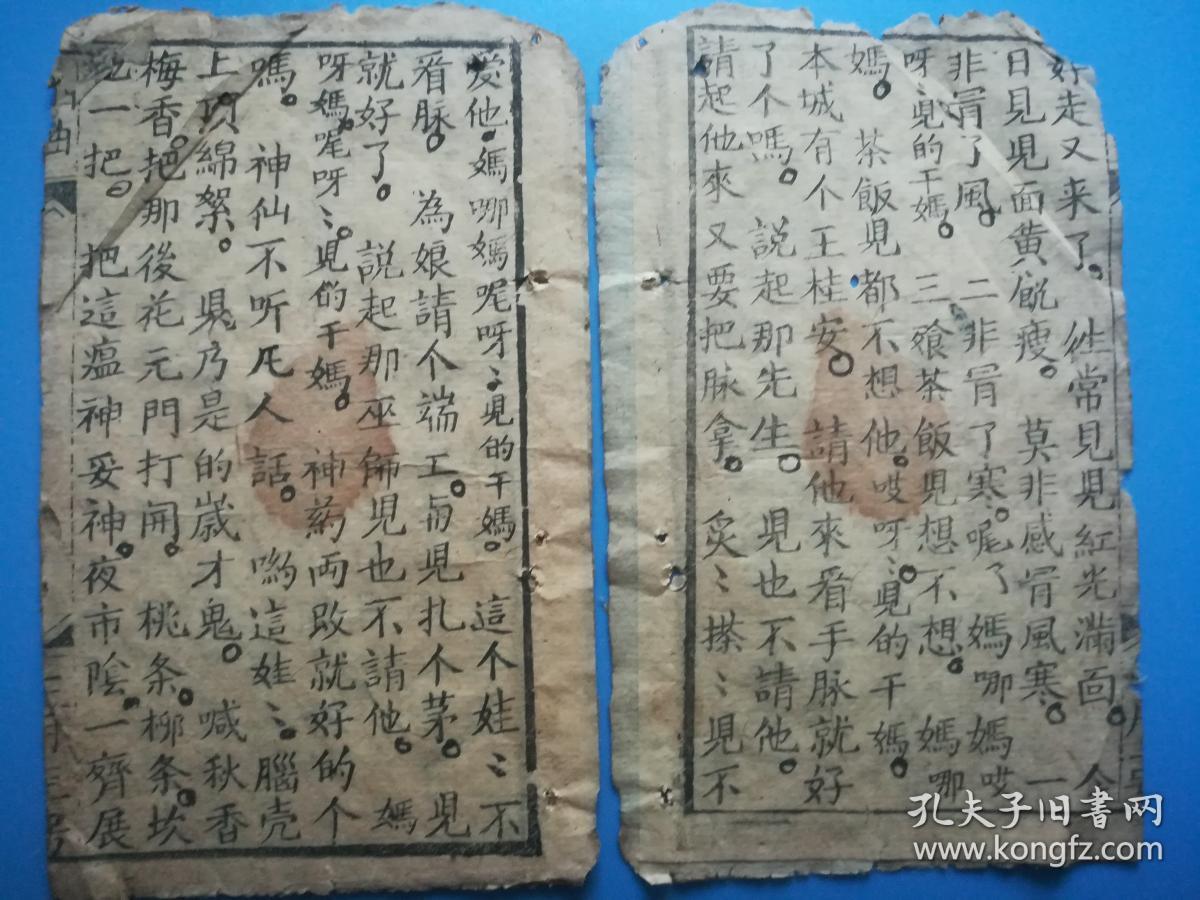 好走又来了。徃常見見紅光滿面。今
日見見面黄肌瘦。莫非感冐風寒。一
非冐了風。二非冐了寒。呢了媽哪媽哎
呀〻見的干媽。三飡茶飯見想不想。媽哪
媽。茶飯見都不想他。哎呀〻見的干媽。
本城有个王桂安。請他來看手脉就好
了个嗎。說起那先生。見也不請他。
請起他來又要把脉拿。炙〻搽〻見不
愛他。媽哪媽呢呀〻見的干媽。這个娃〻不
看脉。為娘請个端工。与見扎个茅。見
就好了。說起那巫師見也不請他。媽
呀媽。呢呀〻。見的干媽。神葯両敗就好的个
嗎。神仙不听凡人話。喲這娃〻腦壳
上頂綿絮。見乃是的歲才鬼。喊秋香
梅香。把那後花元門打開。桃条。栁条。坎
一把。把這瘟神妥神。夜市陰。一齊展
孔夫子旧書网
www.kongfz.com